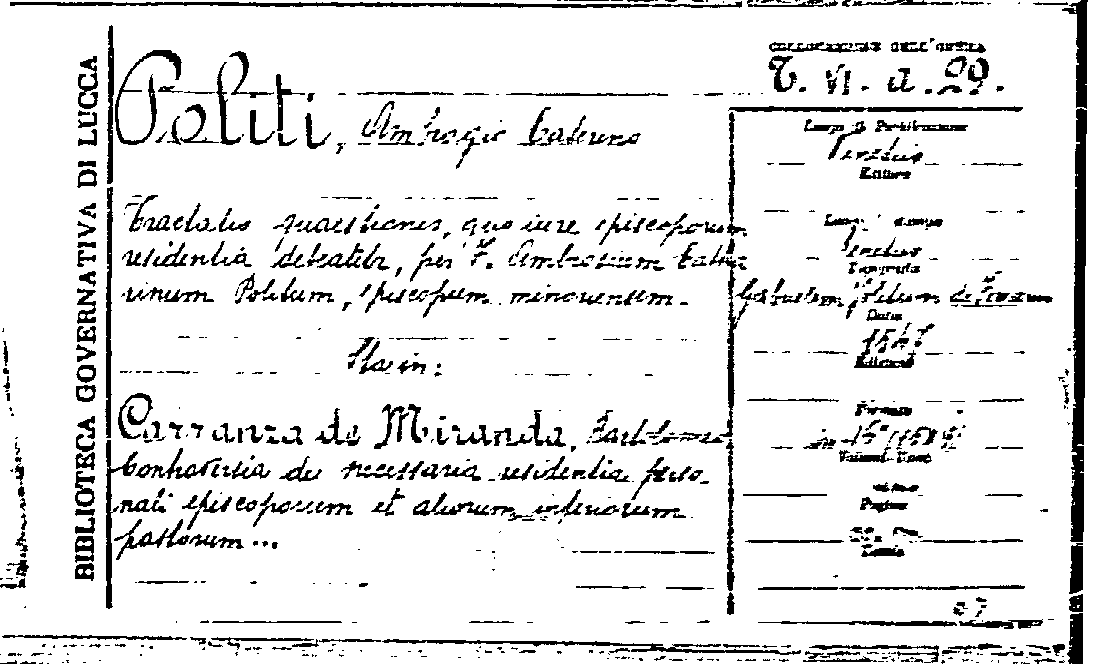 BIBLIOTECA GOVERNATIVA DI LUCCA
COLLOCAZIONE DELL'OPERA
T. VI. a. 29.
Politi, Ambrogio Caterino
Tractatio quaestionis, quo iure episcoporum
residentia debeatur, per F. Ambrosium Catha
rinum Politum, episcopum minoriensem.
Sta in:
Carranza de Miranda, Bartolomeo
Controversia de necessaria residentia perso-
nali episcoporum et aliorum inferiorum
pastorum...
Luogo di Pubblicazione
Venetiis
Editore
Luogo di stampa
Venetiis
Tipografo
Gabrielem Jolitum de Ferrariis
Data
1547
Edizione
Formato
in-16°
Volumi
Pagine